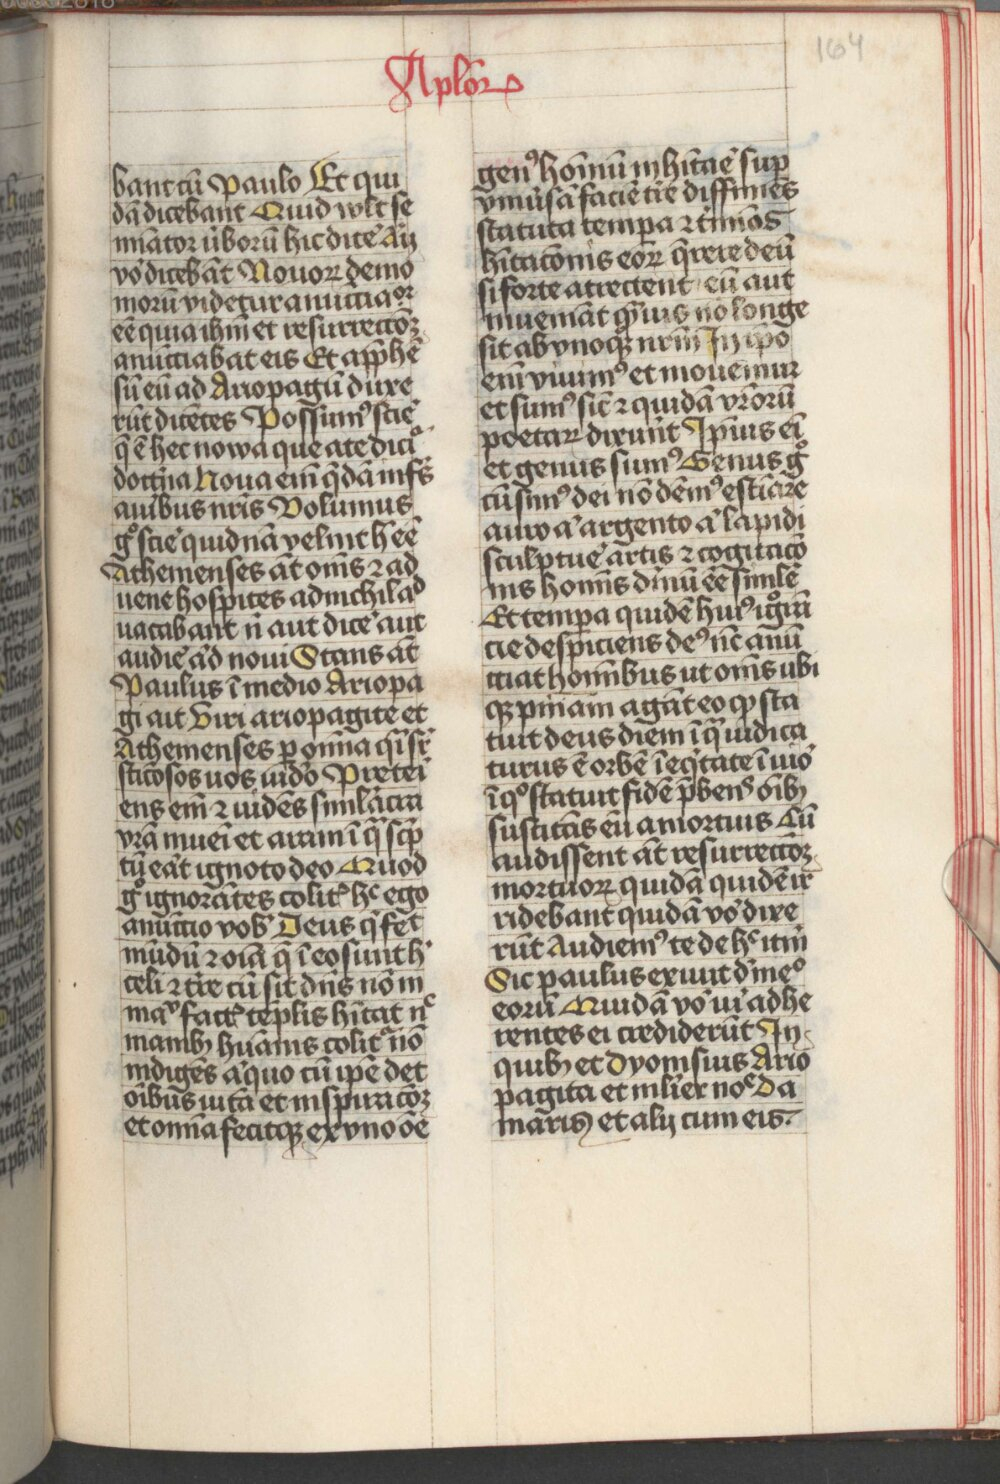 164
Aplōꝝ
bant cū Paulo Et qui
dā dicebant Quid vult se
minator ūborū hic dicē Aĳ
vō dicebāt Nouoꝝ demo
morū videtur anūcciatoꝛ
eē quia ihm et resurreccōꝫ
anūcciabat eis Et app̄hē
sū eū ad Ariopagū duxe
rūt dicētes Possumꝰ sciē
q̄ ē hec nowa que a te diciꝰ
doctrīa Noua em̄ q̄dā infꝰs
auribus nr̄is Volumus
gͦ sciē quidnā velint h̄ eē
Athemenses āt om̄s ⁊ ad
uene hospites ad nichil ad
uacabant n̄ aut dicē aut
audiē ād noui Stans āt
Paulus ī medio Ariopa
gi ait Viri ariopagite et
Athemenses ꝑ om̄ia q̄i sꝛ̄
sticosos uos uidō Preteri
ens em̄ ⁊ uidēs simlācra
vr̄a inuēi et aram ī qᷓ scp̄
tū eāt ignoto deo Quod
gͦ ignorātes colitꝭ hͨ ego
anūccio vob̄ Deus q̄ fec̄t
mūdū ⁊ oīa q̄ ī eo sunt hꝰ
celi ⁊ tr̄e cū sit dn̄s nō in
maꝰ factꝭ tēplis hītat nͨ
manibꝫ huānis colitꝰ nō
indigēs āquo cū ip̄e det
oībus uitā et inspiracōꝫ
et om̄ia fecitqꝫ ex vno oē
genꝰ hoīnū inhītaē suꝑ
vniūsā faciē tr̄e diffiniēs
statuta tempa ⁊ tīmōs
hītacōnis eoꝝ q̄rere deū
si forte attrectent eū aut
inueniāt qͣuis nō longe
sit ab vnoqꝫ nr̄m In ip̄o
em̄ viuimꝰ et mouemur
et sumꝰ sic̄ ⁊ quidā vr̄orū
poetaꝝ dixūnt Ip̄ius ei
et genus sumꝰ Genus gͦ
cū simꝰ dei nō dēmꝰ estīare
auro ā argento ā lapidi
sculptuē artis ⁊ cogitacō
nis homīs dīnū eē simlē
Et tempa quidē huiꝰ ignā
cie despiciens deꝰ nc̄ anū
cciat hominibus ut om̄s ubi
qꝫ pn̄iam agāt eo qꝙ sta
tuit deus diem ī qᷓ iudica
turus ē orbē ī eq̄tate ī uiō
ī qͦ statuit fidē p̄bens oībꝫ
suscitās eū a mortuis Cū
audissent āt resurreccōꝫ
mortuoꝝ quidā quidē ir
ridebant quidā vō dixe
rūt Audiemꝰ te de hͨ itm̄
Sic paulus exiuit d̄ meꝰ
eorū Quidā vō uī adhe
rentes ei crediderūt In
quibꝫ et Dyonisius Ario
pagita et mlīer noͤ Da
maris et alĳ cum eis.